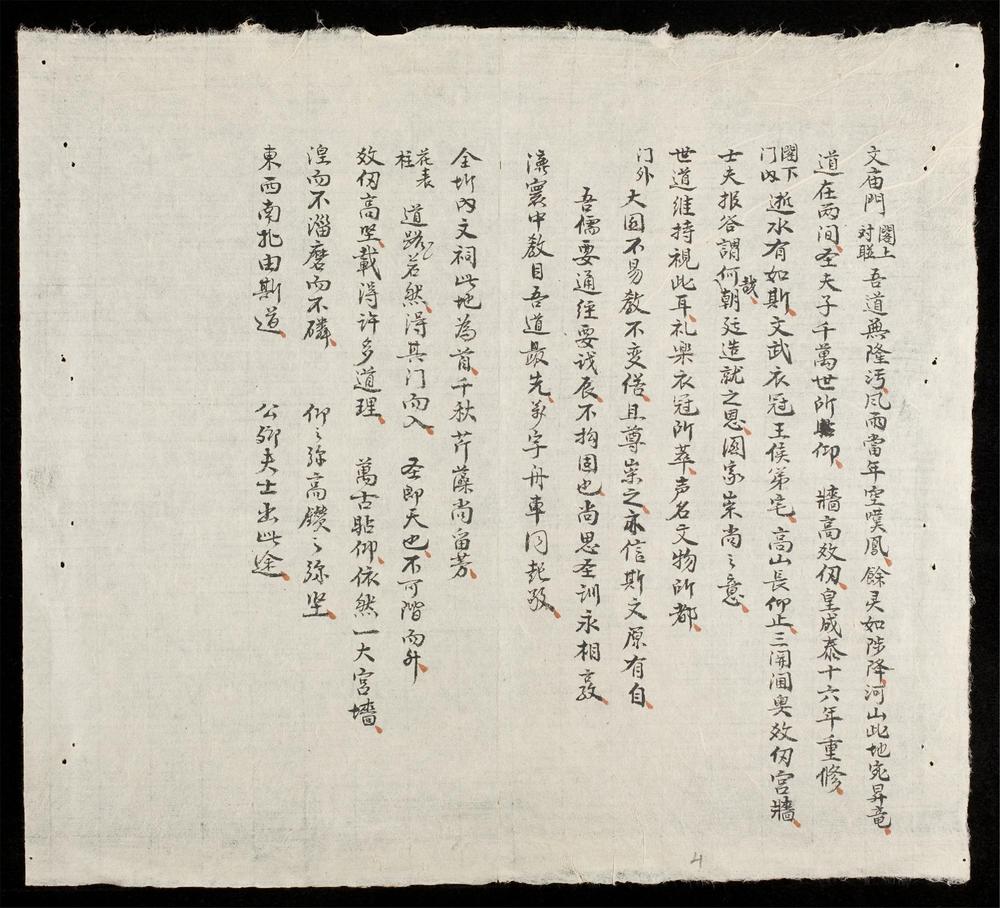 文庙門閣上对聯 吾道無隆汚风雨當年空嘆鳳餘灵如陟降河山此地宛昇竜
道在两间圣夫子千萬世所瞻仰 牆高数仞皇成泰十六年重修
閣下门内 逝水有如斯文武衣冠王侯第宅高山長仰止三闭阃奥数仞宫牆
士夫报答謂何哉朝廷造就之恩國家崇尚之意
世道維持視此耳礼樂衣冠所萃声名文物所都
门外 大國不易教不变俗且尊崇之亦信斯文原有自
吾儒要通经要识辰不拘固也尚思圣训永相敦
瀛寰中教目吾道最先萬字舟車同起敬
全圻内文祠此地為首千秋芹藻尚畱芳
花表柱 道路若然淂其门而入 圣即天也不可階而升
数仞高坚載淂许多道理 萬古瞻仰依然一大宫墻
湼而不淄磨而不磷 仰之弥高鑽之弥坚
東西南北由斯道 公卿夫士出此途
4